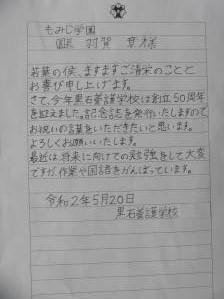 もみじ学園
園長 羽賀 章様
若葉の候、ますますご清栄のことと
お喜び申し上げます。
さて、今年黒石養護学校は創立50周年
を迎えました。記念誌を発行いたしますので
お祝いの言葉をいただきたいと思います。
よろしくお願いいたします。
最近は、将来に向けての勉強をして大変
ですが、作業や国語をがんばっています。
令和2年5月20日
黒石養護学校